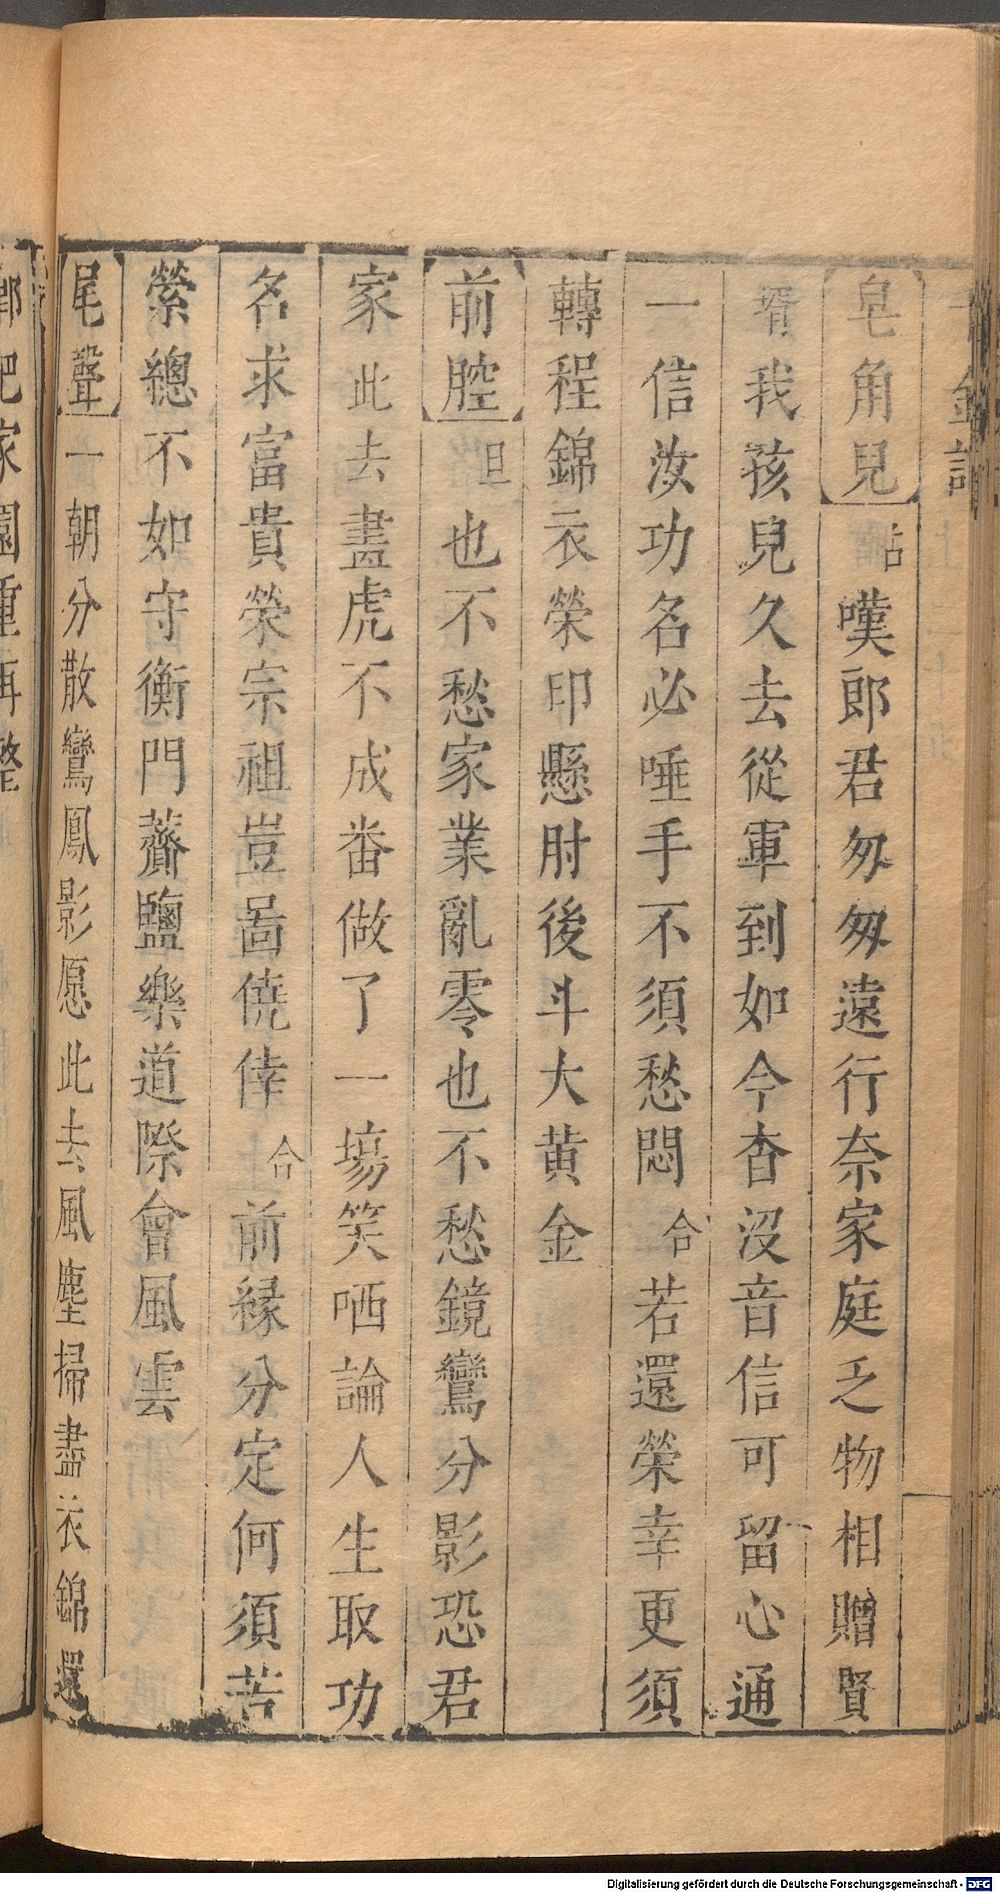 千金記
上
皂角兒
占
嘆郎君匆匆遠行奈家庭乏物相贈賢
壻我孩兒久去從軍到如今杳沒音信可留心通
一信汝功名必唾手不須愁悶合若還榮幸更須
轉程錦衣榮印懸肘後斗大黄金
前腔旦也不愁家業亂零也不愁鏡鸞分影恐君
家此去畫虎不成畨做了一場笑哂論人生取功
名求富貴榮宗祖豈啚僥倖合前緣分定何須苦
縈總不如守衡門虀鹽樂道際會風雲
尾聲一朝分散鸞鳳影愿此去風塵掃盡衣錦還
郷把家園重再整
Digitalisierung gefördert durch die Deutsche Forschungsgemeinschaft - DFG